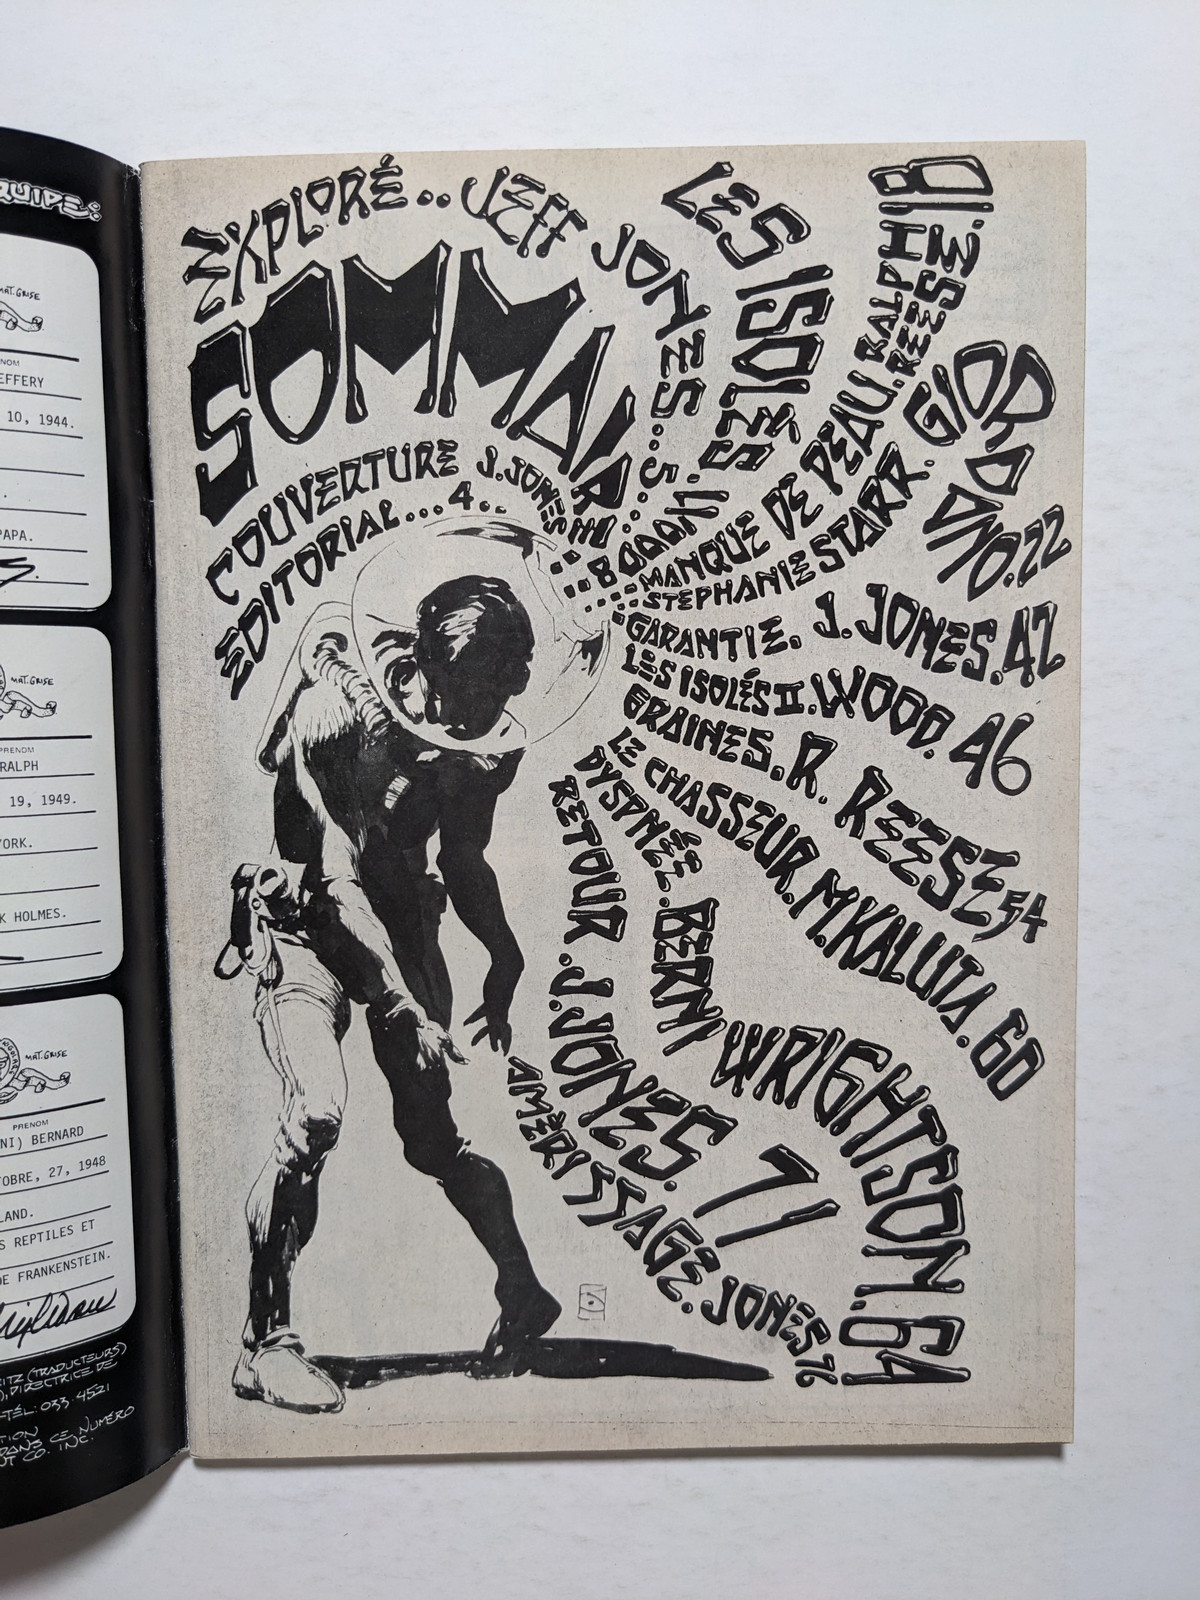 QUIPE:
MAT.GRISE
NOM
EFFERY
10, 1944.
PAPA.
MAT.GRISE
PRENOM
RALPH
19, 1949.
YORK.
K HOLMES.
MAT.GRISE
PRENOM
NI) BERNARD
TOBRE, 27, 1948
LAND.
S REPTILES ET
DE FRANKENSTEIN.
RITZ (TRADUCTEURS)
), DIRECTRICE DE
TÉL: 033.4521
TION
DANS CE NUMÉRO
NT CO. INC.
EXPLORÉ.. JEFF JONES...5...
SOMMAIRE
COUVERTURE J.JONES
EDITORIAL...4..
LES ISOLÉS.
MANQUE DE PEAU. RALPH REESE.18
STEPHANIE STARR. GIORDANO.22
GARANTIE. J. JONES.42
LES ISOLÉS II. WOOD. 46
GRAINES. R. REESE 54
LE CHASSEUR. M.KALUTA. 60
DYSPNÉE. BERNI WRIGHTSON.64
RETOUR. J.JONES. 71
AMÈRISSAGE. JONES 76